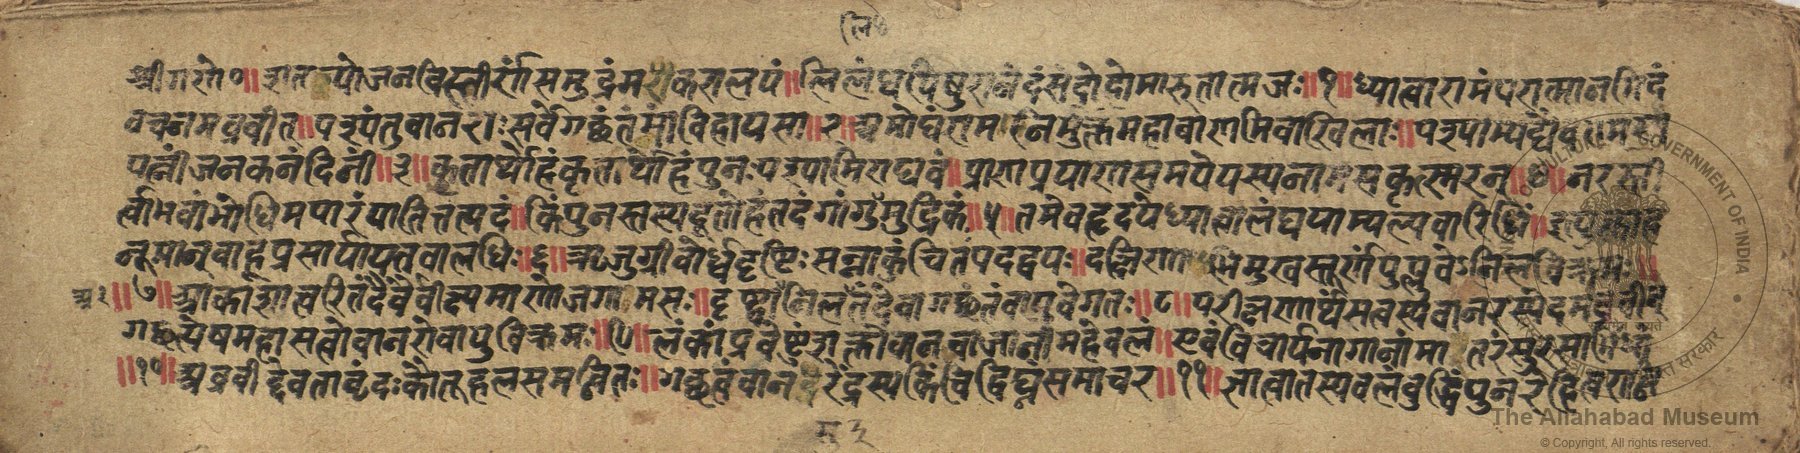 श्रीगणे०॥शतयोजनविस्तीर्णंसमुद्रंमकरालयं॥लिलंघयिषुरानंदसंदोहोमारुतात्मजः॥१॥ध्यात्वारामंपरात्मानमिदं
वचनमब्रवीत॥पश्यंतुवानराःसर्वेगछंतंमांविहायसा॥२॥अमोघंराम निर्मुक्तंमहाबाणमिवाखिलाः॥पश्याम्यद्यैव
पत्नींजनकनंदिनीं॥३॥कृतार्थोहंकृतार्थोहंपुनःपश्यामिराघवं॥प्राणप्रयाणसमयेयस्यनामसकृत्स्मरन्॥४॥नरस्ती
र्त्वाभवांभोधिमपारंयातितत्पदं॥किंपुनस्तस्यदूतोहंतदंगांगुलिमुद्रिकः॥५॥तमेवहृदयेध्यात्वालंघयाम्यल्पवारिधिं॥इत्युक्त्वाह
नूमान्बाहूप्रसार्यायतवालधिः॥६॥ऋजुग्रीवोर्ध्वदृष्टिःसन्नाकुंचितपदद्वयः॥दक्षिणाभिमुखस्तूर्णंपुप्लुवेऽनिलविक्रमः॥
अ२॥७॥आकाशात्त्वरितंदेवैर्वीक्ष्यमाणोजगामसः॥दृष्ट्वानिलसुतंदेवागछंतंवायुवेगतः॥८॥परीक्षणार्थंसत्वस्यवानरस्येदमब्रुवन्
गछत्येषमहासत्वोवानरोवायुविक्रमः॥९॥लंकांप्रवेष्टुंशक्तोवानवाजानीमहेबलं॥एवंविचार्यनागानांमातरंसुरसाभिधां
॥१०॥अब्रवीद्देवतावृंदःकौतूहलसमन्वितः॥गछत्वंवानरेंद्रस्यकिंचिद्विघ्नंसमाचर॥११॥ज्ञात्वातस्यबलंबुद्धिंपुनरेहित्वरान्विता
The Allahabad Museum
© Copyright, All rights reserved.